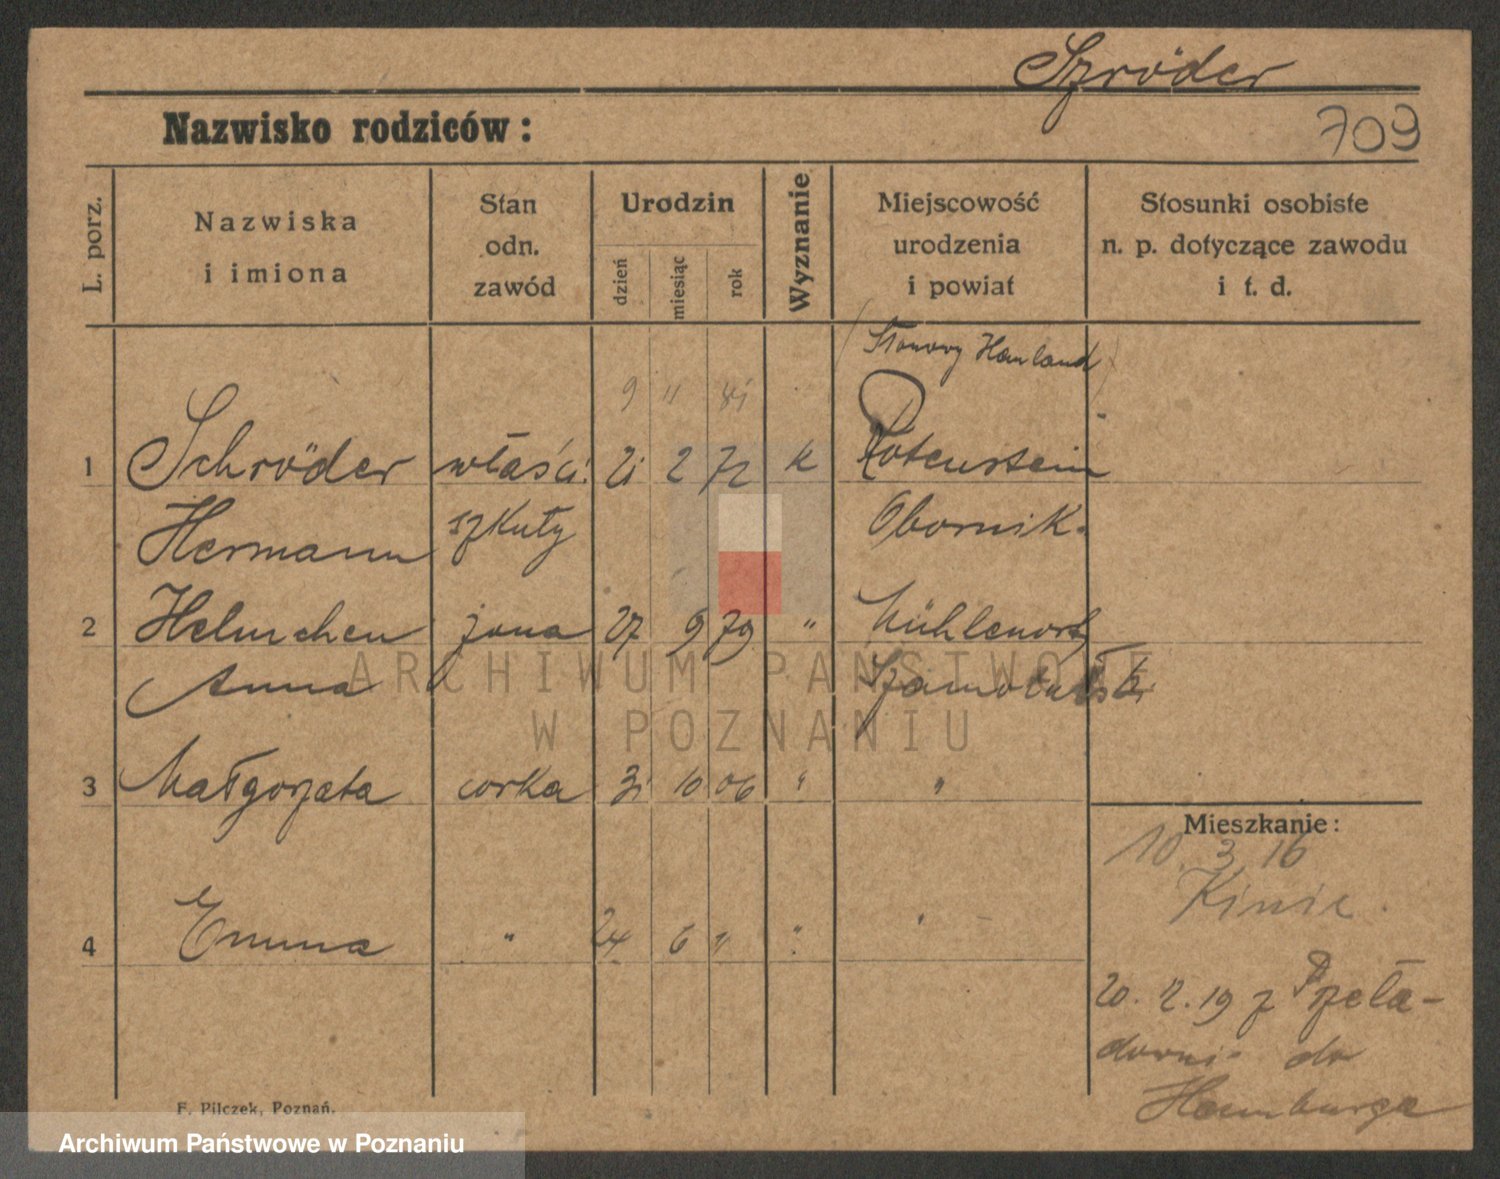 Szröder
Nazwisko rodziców:
709
L. porz.
Nazwiska
i imiona
Stan
odn.
zawód
Urodzin
dzień
miesiąc
rok
Wyznanie
Miejscowość
urodzenia
i powiat
Stosunki osobiste
n. p. dotyczące zawodu
i t. d.
Hauland)
9 11 81
1 Schröder właści. 21 2 72 k Rotenstein
Hermann szkuty Obornik.
2 Helmchen żona 27 9 79 " Mühlenort
Anna Szamotulski
ARCHIWUM PAŃSTWOWE
W POZNANIU
3 Małgorzata corka 31 10 06 " "
Mieszkanie:
10. 3 16
4 Emma " 24 6 " " "
20. 2. 19 z Przeła-
downi do
Hamburga
F. Pilczek, Poznań.
Archiwum Państwowe w Poznaniu